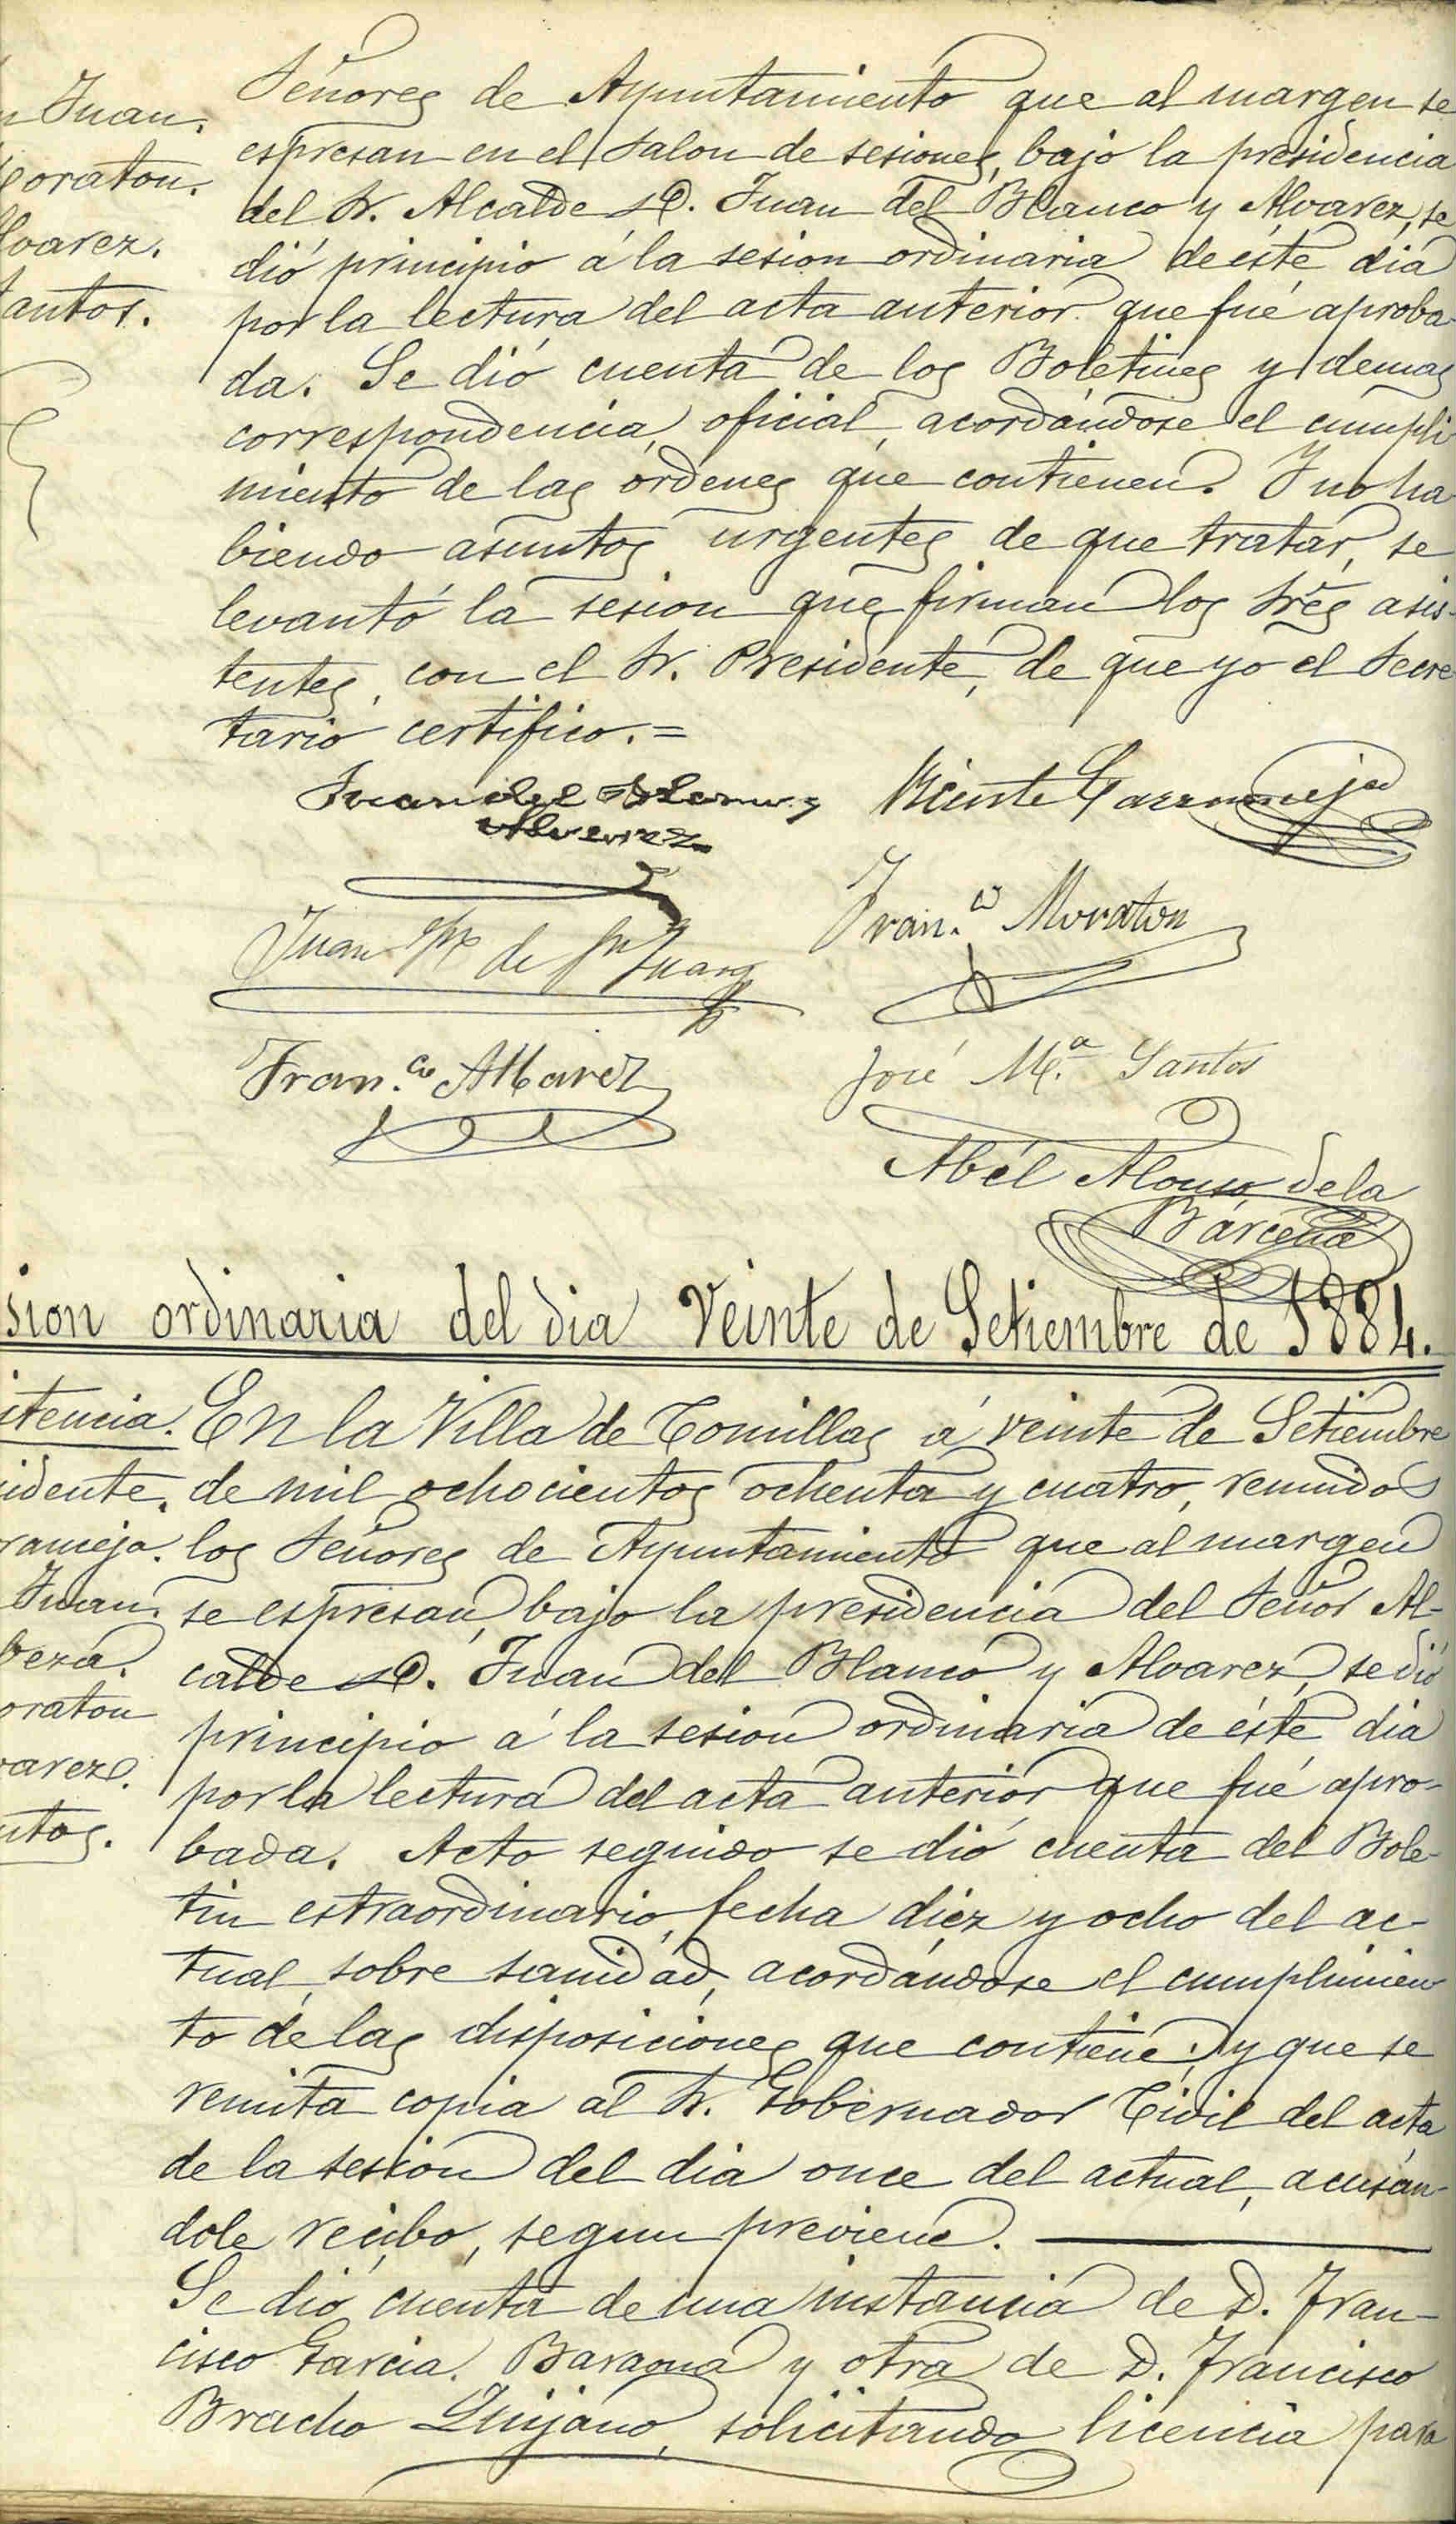 Juan.
oraton.
lvarez.
antos.
Señores de Ayuntamiento que al margen se
espresan en el Salon de sesiones, bajo la presidencia
del Sr. Alcalde D. Juan del Blanco y Alvarez, se
dió principio á la sesion ordinaria de éste dia
por la lectura del acta anterior que fué aproba-
da. Se dió cuenta de los Boletines y demas
correspondencia oficial, acordándose el cumpli
miento de las órdenes que contienen. Y no ha
biendo asuntos urgentes de que tratar, se
levantó la sesion que firman los Sres asis-
tentes, con el Sr. Presidente, de que yo el Secre
tario certifico.=
Juan del Blanco y
Alvarez
Vicente Garrameja
Juan de Juan
Fran.co Moraton
Fran.co Alvarez
José M.a Santos
Abél Alonso de la
Bárcena
sion ordinaria del dia Veinte de Setiembre de 1884.
itencia.
idente.
rameja.
Juan.
beza.
oraton
varez.
ntos.
En la Villa de Comillas á veinte de Setiembre
de mil ochocientos ochenta y cuatro, reunidos
los Señores de Ayuntamiento que al margen
se espresan, bajo la presidencia del Señor Al-
calde D. Juan del Blanco y Alvarez, se dió
principio á la sesion ordinaria de éste dia
por la lectura del acta anterior que fué apro-
bada. Acto seguido se dió cuenta del Bole-
tin estraordinario, fecha diez y ocho del ac-
tual, sobre sanidad, acordándose el cumplimien
to de las disposiciones que contiene; y que se
remita copia al Sr. Gobernador Civil del acta
de la sesion del dia once del actual, acusán-
dole recibo, segun previene.
Se dió cuenta de una instancia de D. Fran-
cisco Garcia Baraona y otra de D. Francisco
Bracho Quijano, solicitando licencia para